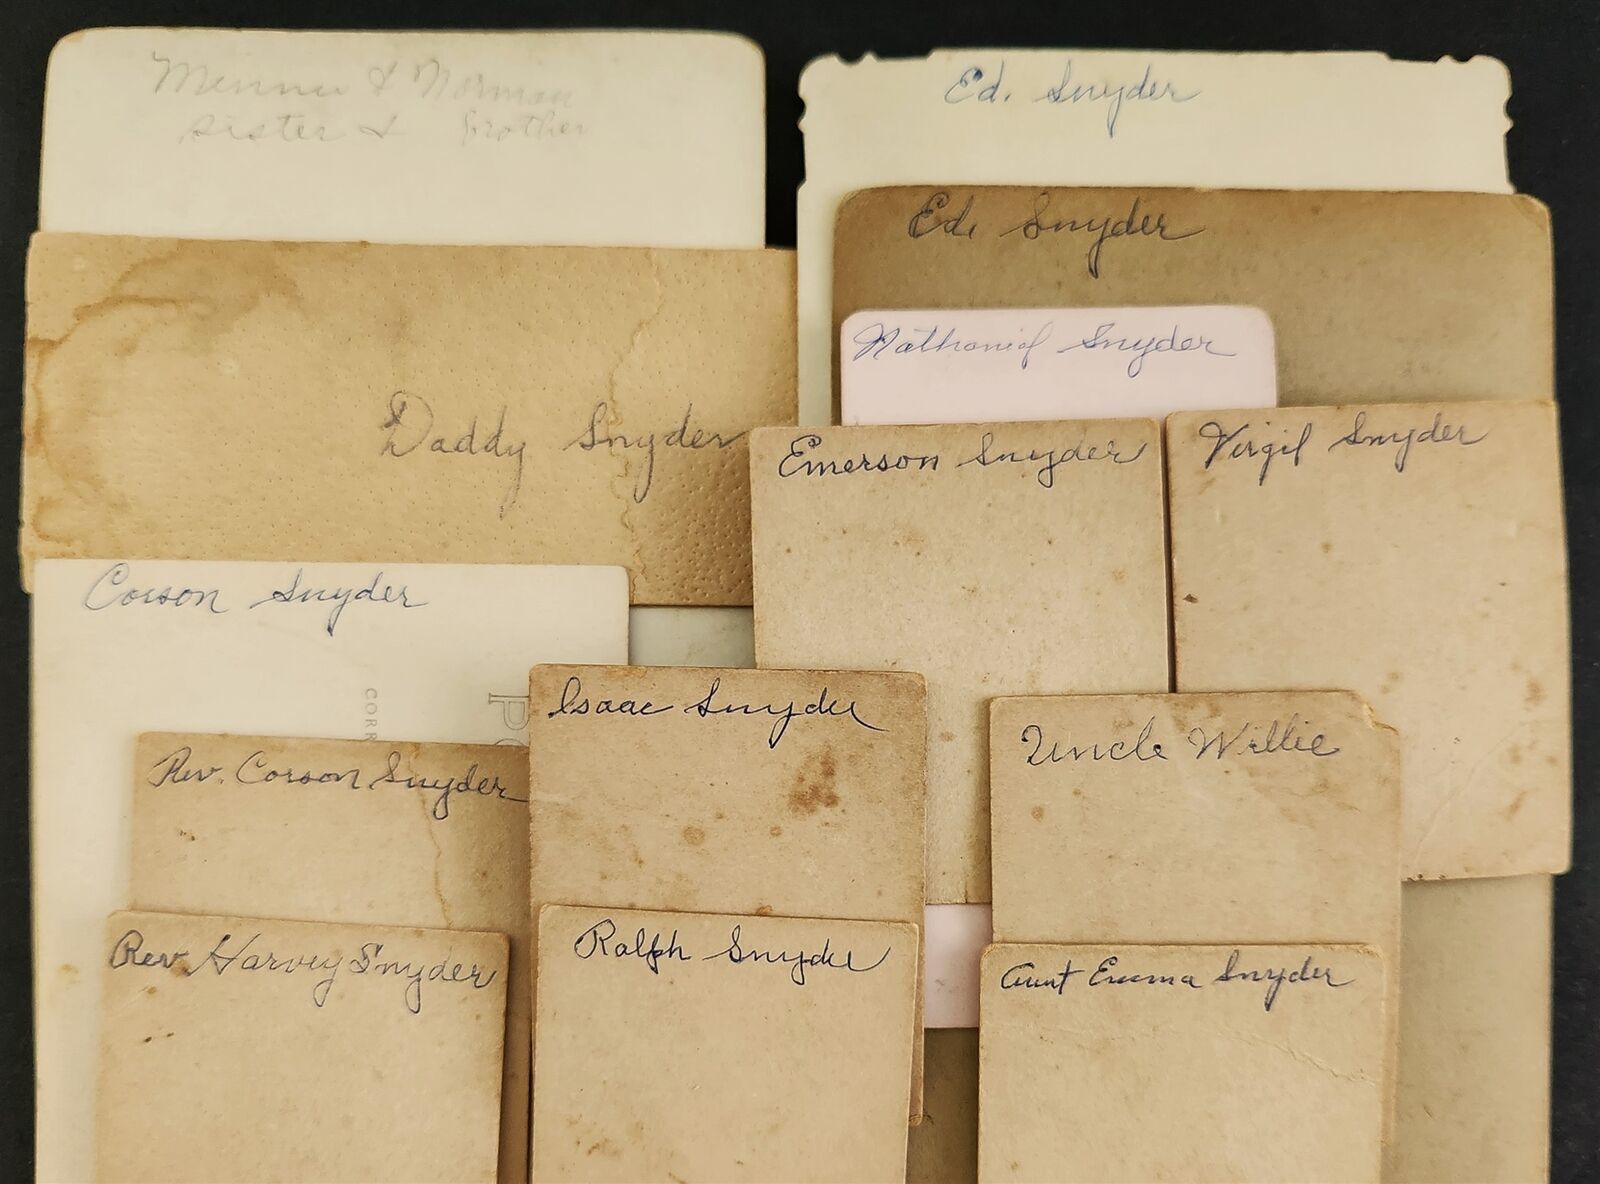 Minnie & Norman
sister & brother
Ed. Snyder
Ed. Snyder
Nathaniel Snyder
Daddy Snyder
Emerson Snyder
Virgil Snyder
Corson Snyder
CORR
PO
Isaac Snyder
Uncle Willie
Rev. Corson Snyder
Rev Harvey Snyder
Ralph Snyder
Aunt Emma Snyder